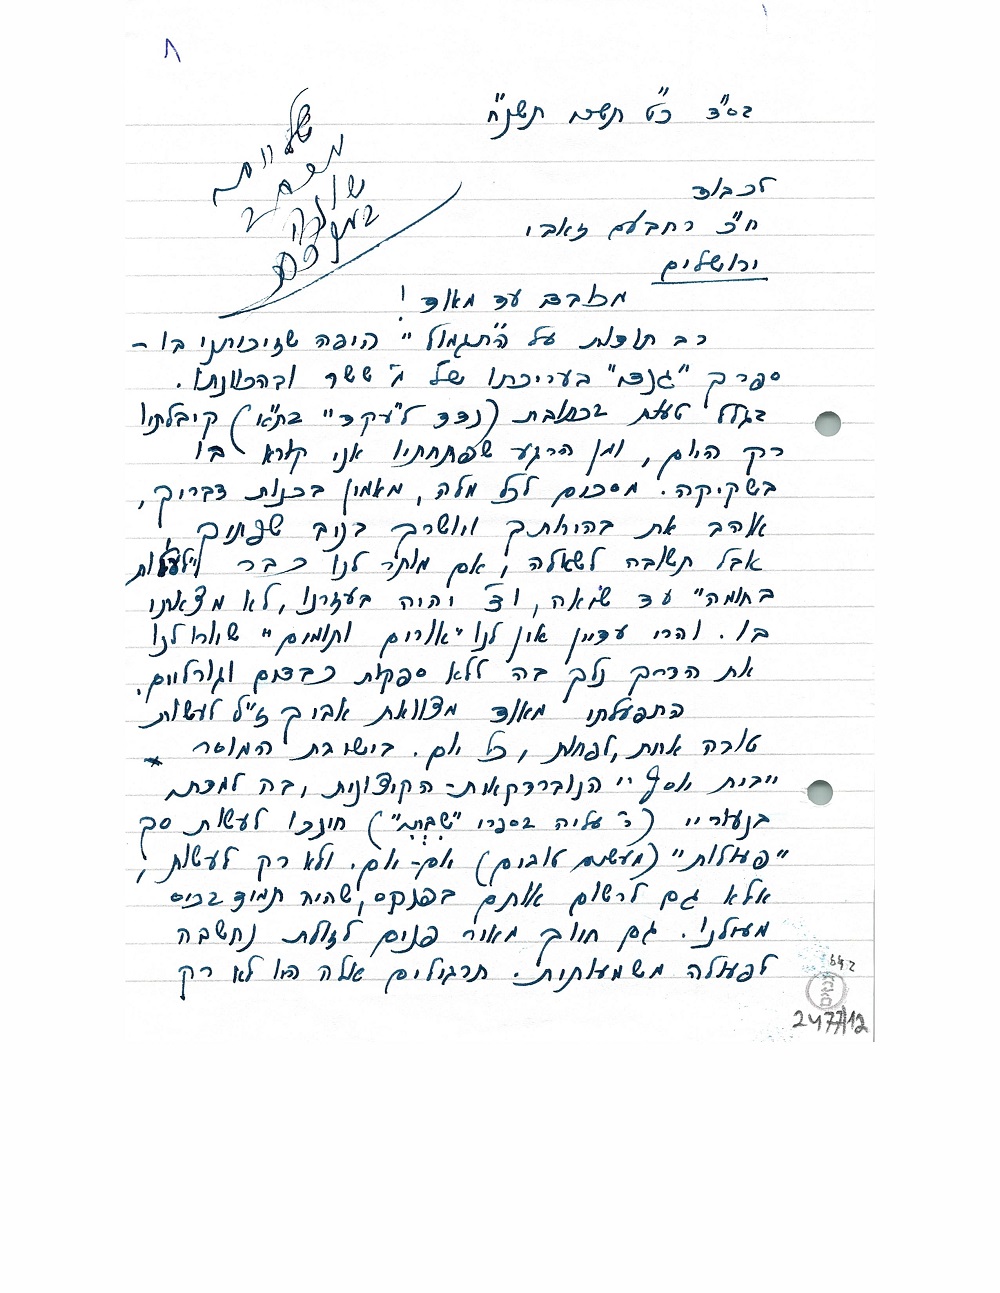 בס"ד כ"ט תשרי תשנ"ח
לכבוד
ח"כ רחבעם זאבי
ירושלים
מכובדי עד מאוד!
רב תודות על ה"תגמול" היפה שזיכיתני בו –
ספרך "גנדי" בעריכתו של א. ששר ובהכוונתו.
בגלל טעות בכתובת (נדד ל"עקד" בת"א) קיבלתיו
רק היום, ומן הרגע שפתחתיו אני קורא בו
בשקיקה. מסכים לכל מלה, מאמין בכנות דבריך,
אוהב את בהירותך ויושרך בניב שפתיך
אבל תשובה לשאלה, אם מותר לנו כבר "לעלות
בחומה" עד שואה, וצ' יהיה בעזרנו, לא מצאתי
בו. והרי עדיין אין לנו "אורים ותומים" שיורו לנו
את הדרך נלך בה ללא ספקות כבדים וגורליים.
התפעלתי מאוד מצוואת אביך ז"ל לעשות
טובה אחת, לפחות, כל יום. בישיבת המוסר
"בית יוסף" הנוברדקאית-הקיצונית, בה למדתי
בנעוריי (ר' עליה בספרי "שבתי") חינכו לעשות סך
"פעולות" (מעשים טובים) יום-יום. ולא רק לעשות,
אלא גם לרשום אותם בפנקס, שהיה תמיד בכיס
מעילנו. גם חיוך מאיר פנים לזולת נחשבה
לפעולה משמעותית. תרגולים אלה היו לא רק
2477/12